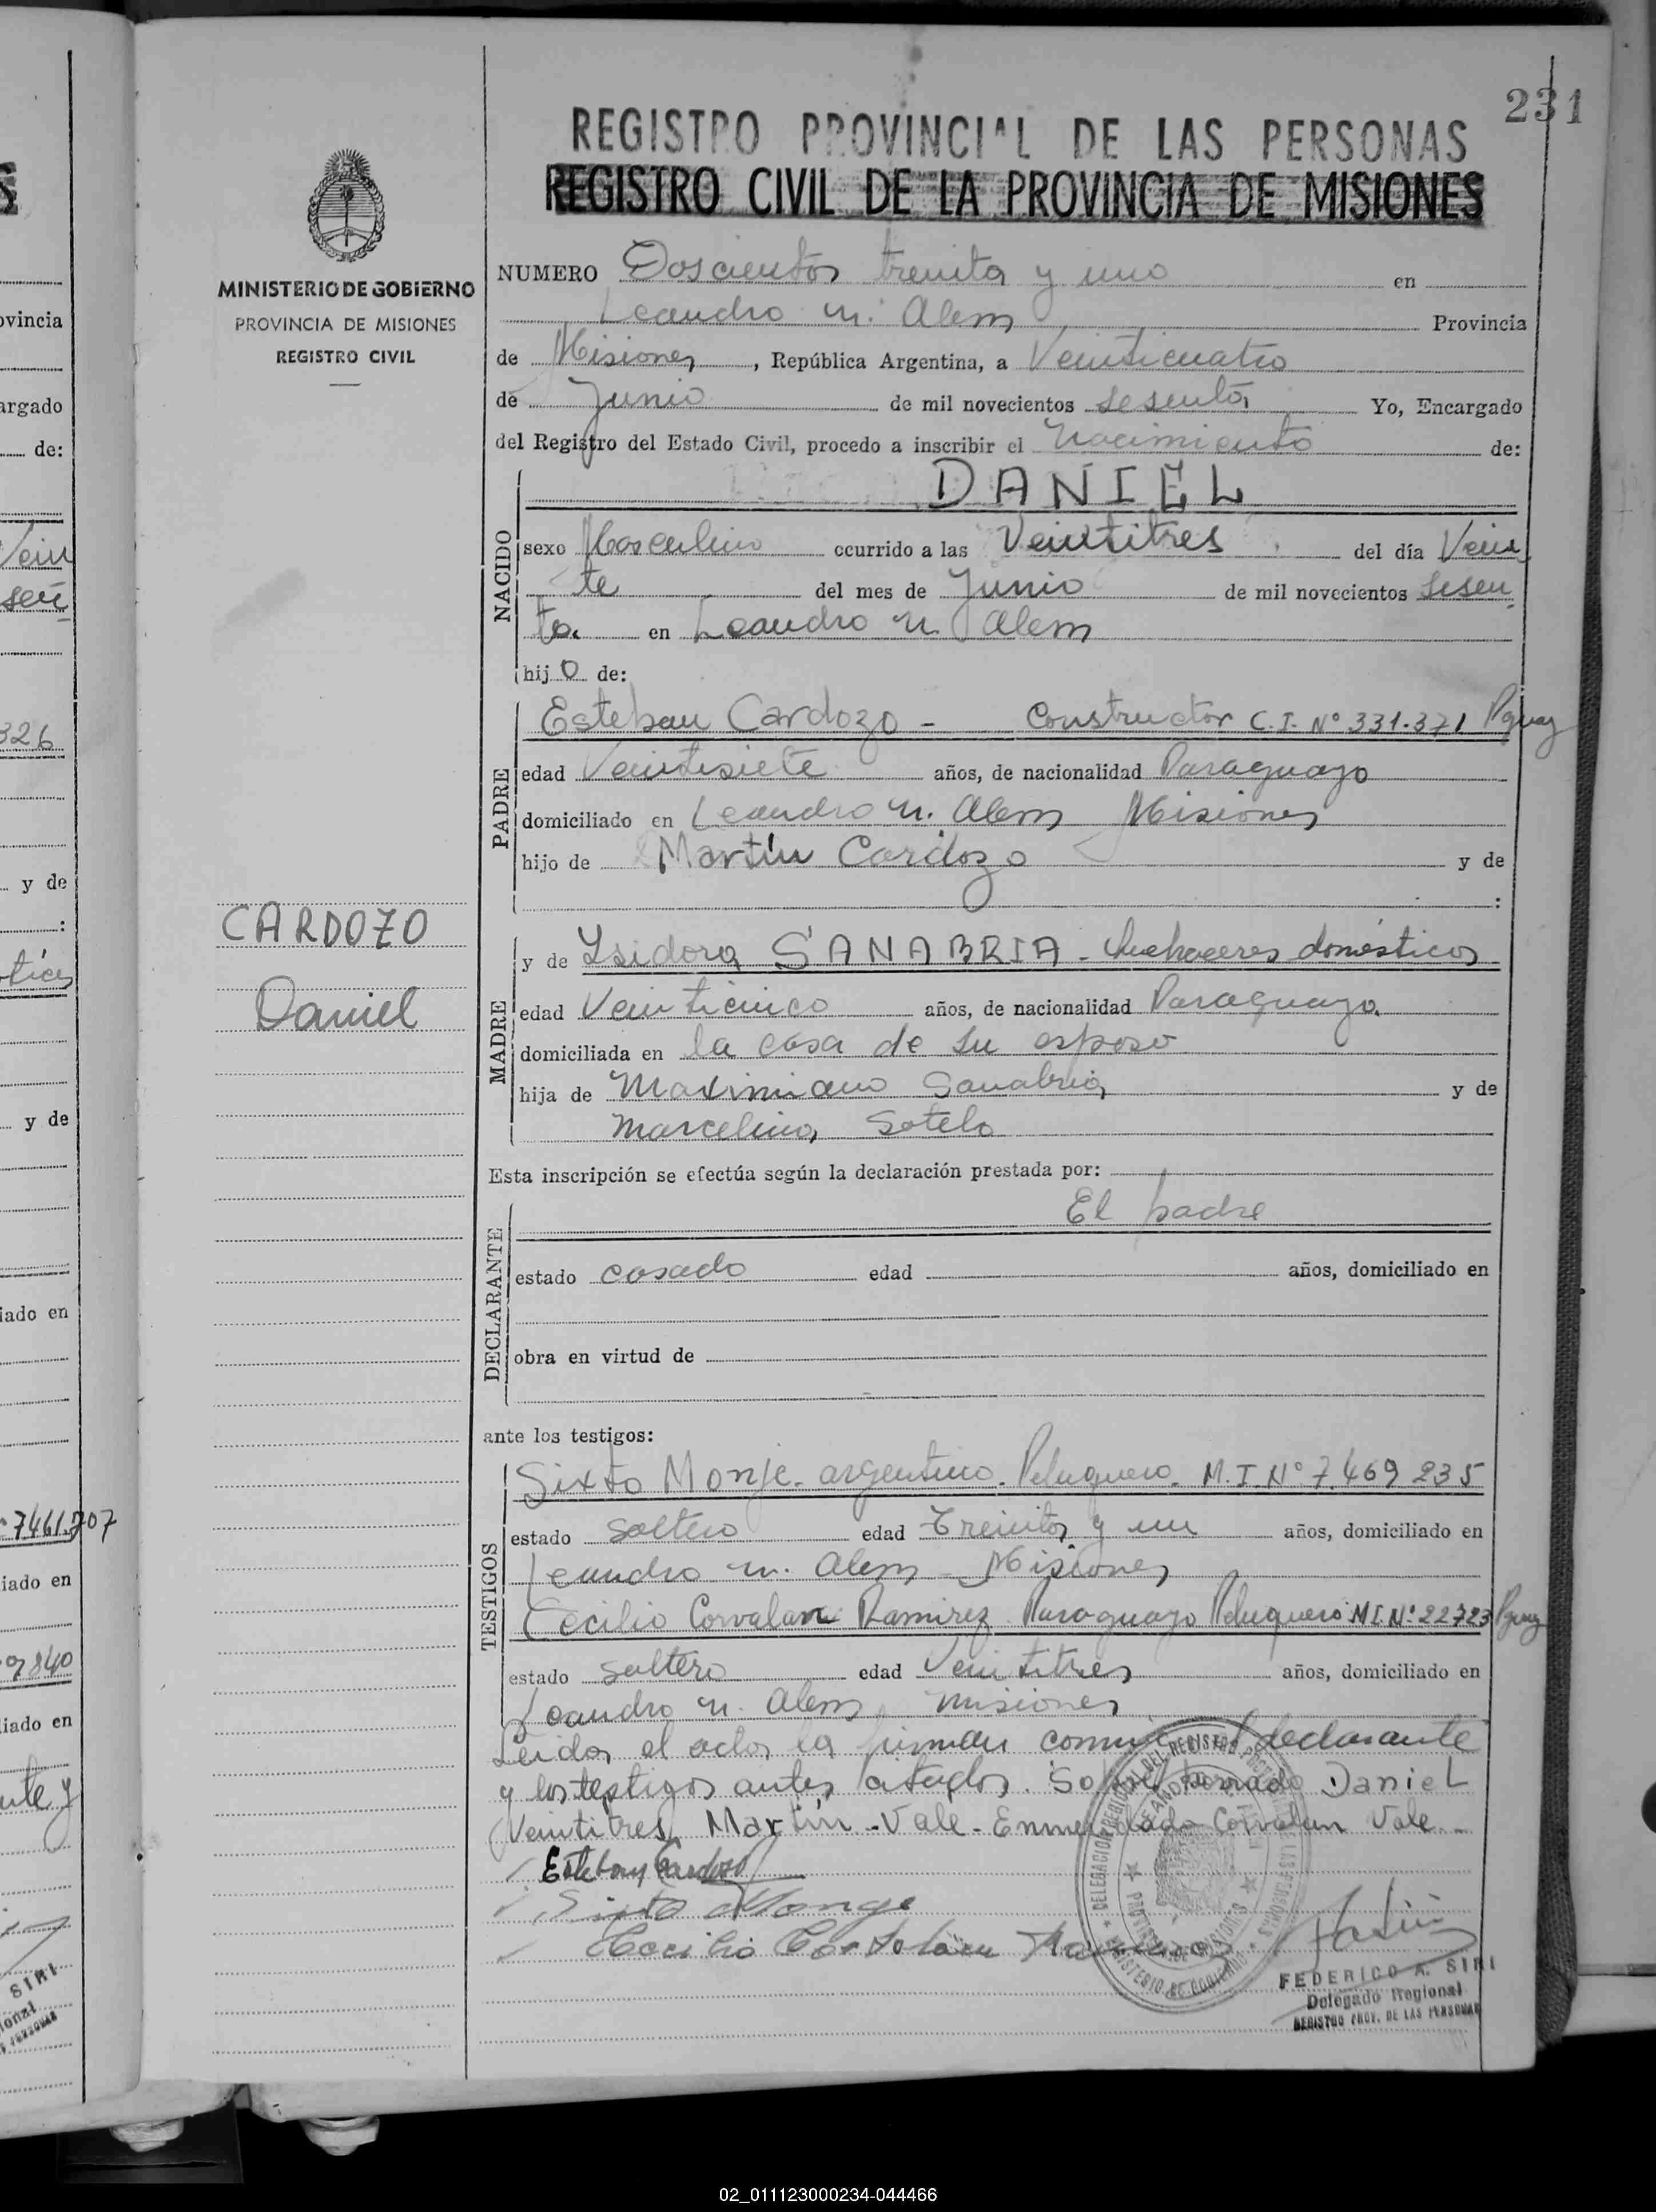 231
REGISTRO PROVINCIAL DE LAS PERSONAS
REGISTRO CIVIL DE LA PROVINCIA DE MISIONES
MINISTERIO DE GOBIERNO
PROVINCIA DE MISIONES
REGISTRO CIVIL
CARDOZO
Daniel
NUMERO Doscientos treinta y uno en
Leandro N. Alem Provincia
de Misiones, República Argentina, a Veinticuatro
de Junio de mil novecientos sesenta, Yo, Encargado
del Registro del Estado Civil, procedo a inscribir el Nacimiento de:
NACIDO
DANIEL
sexo Masculino ocurrido a las Veintitres del día Vein
te del mes de Junio de mil novecientos sesen
ta. en Leandro N. Alem
hijo de:
PADRE
Esteban Cardozo - Constructor C.I. Nº 331.371 Pguay
edad Veintisiete años, de nacionalidad Paraguayo
domiciliado en Leandro N. Alem Misiones
hijo de Martín Cardozo y de
:
MADRE
y de Ysidora SANABRIA - Quehaceres domésticos
edad Veinticinco años, de nacionalidad Paraguaya.
domiciliada en la casa de su esposo
hija de Maximiano Sanabria y de
Marcelina Sotelo
Esta inscripción se efectúa según la declaración prestada por:
DECLARANTE
El padre
estado casado edad años, domiciliado en
obra en virtud de
ante los testigos:
TESTIGOS
Sixto Monje - argentino - Peluquero - M.I. Nº 7.469 235
estado soltero edad Treinta y un años, domiciliado en
Leandro N. Alem - Misiones
Cecilio Corvalan Ramirez Paraguayo Peluquero M.I. Nº 22723 Pguay
estado soltero edad Veintitres años, domiciliado en
Leandro N. Alem Misiones
Leida el acta, la firman conmigo el declarante
y los testigos antes citados. Sobre borrado Daniel
Veintitres, Martín - Vale - Enmendado Corvalan Vale -
Esteban Cardozo
Sixto Monge
Cecilio Corvalan
FEDERICO A. SIRI
Delegado Regional
REGISTRO PROV. DE LAS PERSONAS
02_011123000234-044466